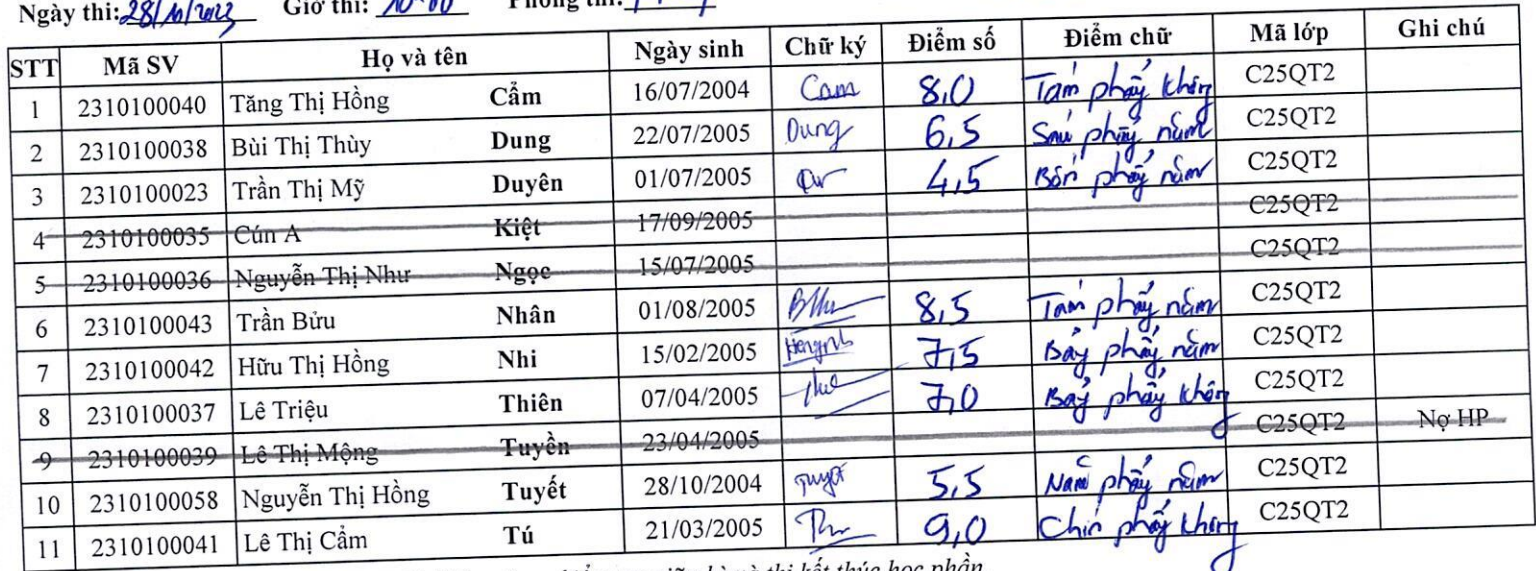 Ngày thi: 28/10/2023 Giờ thi: 10h00 Phòng thi:
STT Mã SV Họ và tên Ngày sinh Chữ ký Điểm số Điểm chữ Mã lớp Ghi chú
1 2310100040 Tăng Thị Hồng Cẩm 16/07/2004 Cam 8,0 Tám phẩy không C25QT2
2 2310100038 Bùi Thị Thùy Dung 22/07/2005 Dung 6,5 Sáu phẩy năm C25QT2
3 2310100023 Trần Thị Mỹ Duyên 01/07/2005 4,5 Bốn phẩy năm C25QT2
4 2310100035 Cún A Kiệt 17/09/2005 C25QT2
5 2310100036 Nguyễn Thị Như Ngọc 15/07/2005 C25QT2
6 2310100043 Trần Bửu Nhân 01/08/2005 8,5 Tám phẩy năm C25QT2
7 2310100042 Hữu Thị Hồng Nhi 15/02/2005 7,5 Bảy phẩy năm C25QT2
8 2310100037 Lê Triệu Thiên 07/04/2005 7,0 Bảy phẩy không C25QT2
9 2310100039 Lê Thị Mộng Tuyền 23/04/2005 C25QT2 Nợ HP
10 2310100058 Nguyễn Thị Hồng Tuyết 28/10/2004 Tuyết 5,5 Năm phẩy năm C25QT2
11 2310100041 Lê Thị Cẩm Tú 21/03/2005 9,0 Chín phẩy không C25QT2
thi kết thúc học phần